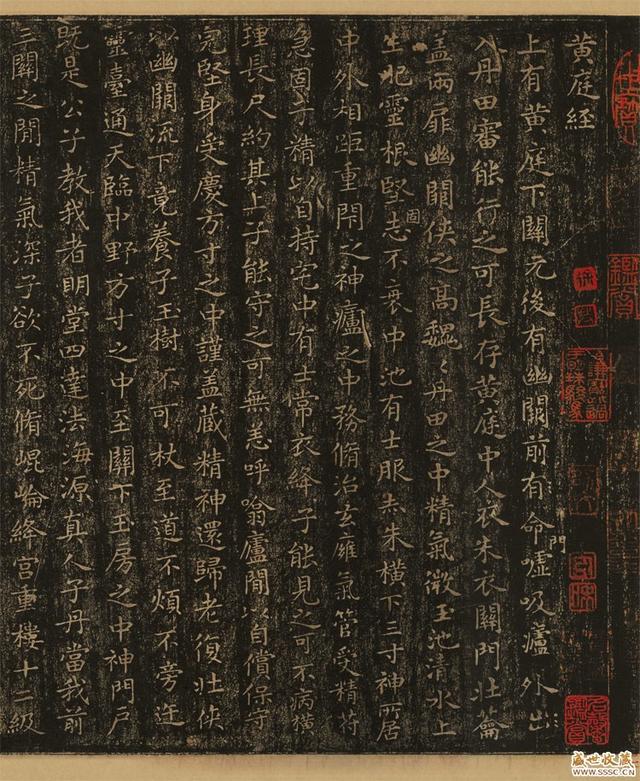 黄庭经
上有黄庭下關元後有幽闕前有命門嘘吸廬外出
入丹田審能行之可長存黄庭中人衣朱衣關門壮籥
盖兩扉幽闕侠之髙魏〻丹田之中精氣微玉池清水上
生肥靈根堅固志不衰中池有士服赤朱横下三寸神所居
中外相距重閇之神廬之中務脩治玄廱氣管受精符
急固子精以自持宅中有士常衣絳子能見之可不病横
理長尺約其上子能守之可無恙呼噏廬閒以自償保守
完堅身受慶方寸之中謹盖蔵精神還歸老復壮侠
以幽闕流下竟養子玉樹不可杖至道不煩不旁迕
靈臺通天臨中野方寸之中至關下玉房之中神門户
既是公子教我者明堂四達法海源真人子丹當我前
三關之閒精氣深子欲不死脩崐崘絳宫重樓十二級
盛世收藏
WWW.SSSC.CN